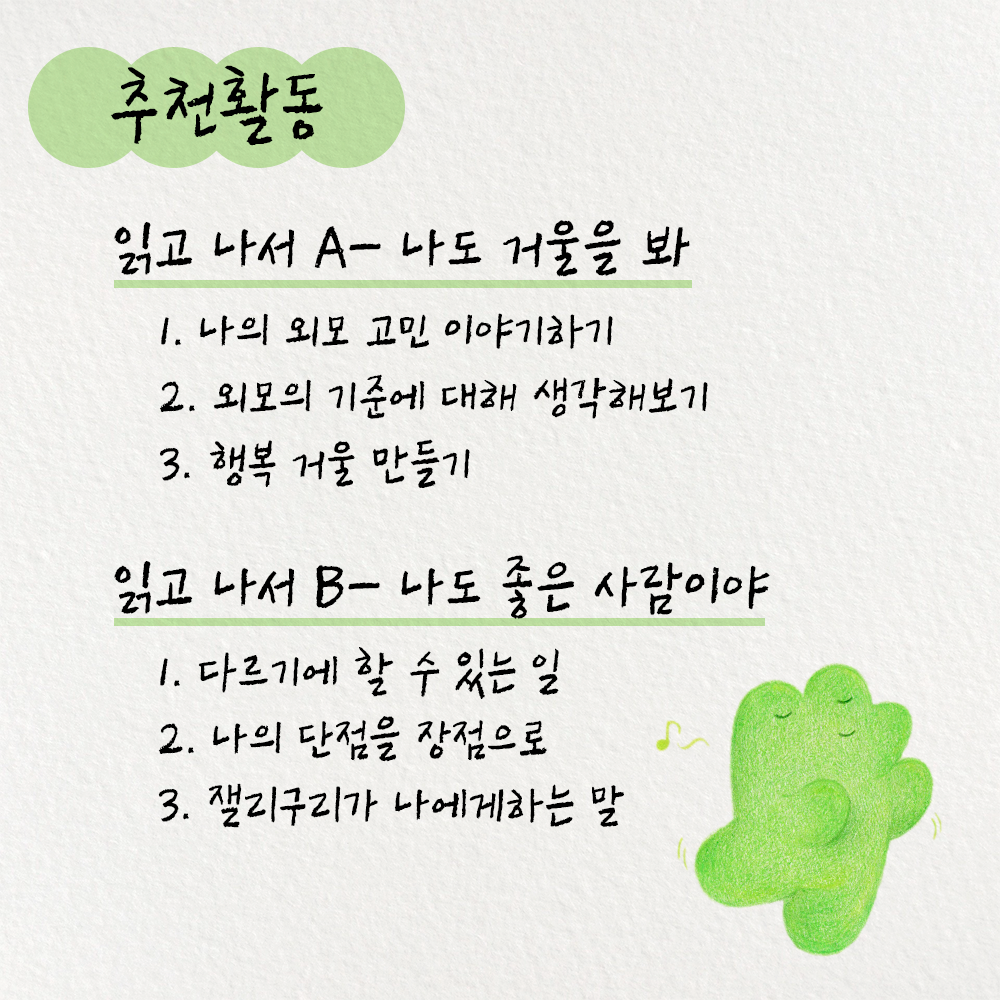 추천활동
읽고 나서 A- 나도 거울을 봐
1. 나의 외모 고민 이야기하기
2. 외모의 기준에 대해 생각해보기
3. 행복 거울 만들기
읽고 나서 B- 나도 좋은 사람이야
1. 다르기에 할 수 있는 일
2. 나의 단점을 장점으로
3. 잴리구리가 나에게하는 말